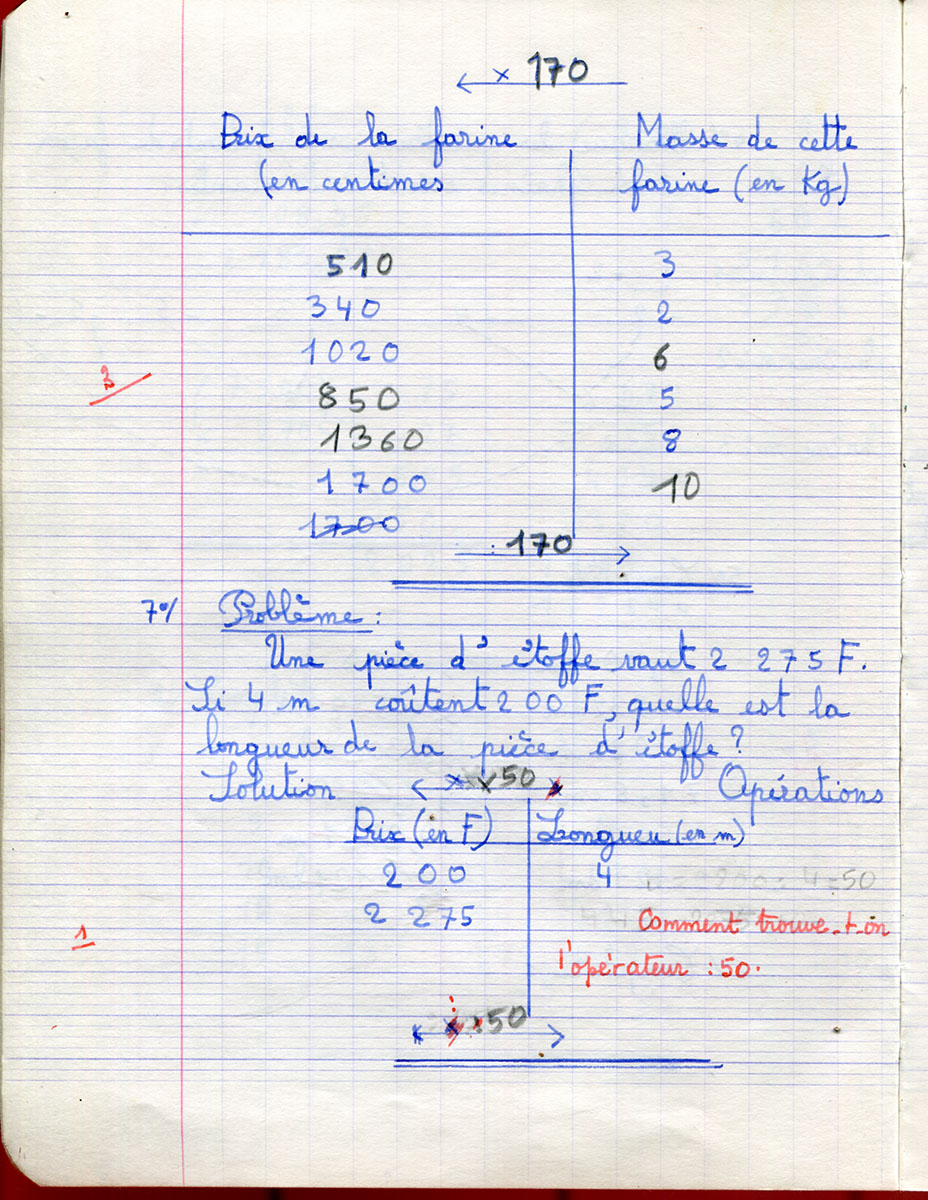 × 170
Prix de la farine Masse de cette
(en centimes farine (en Kg)
510 3
340 2
1020 6
3
850 5
1360 8
1700 10
1700
: 170
7°/ Problème :
Une pièce d' étoffe vaut 2 275 F.
Si 4 m coûtent 200 F, quelle est la
longueur de la pièce d'étoffe ?
Solution × 50 Opérations
Prix (en F) Longueu (en m)
200 4 200 : 4 = 50
2 275 Comment trouve-t-on
1
l'opérateur : 50.
: 50